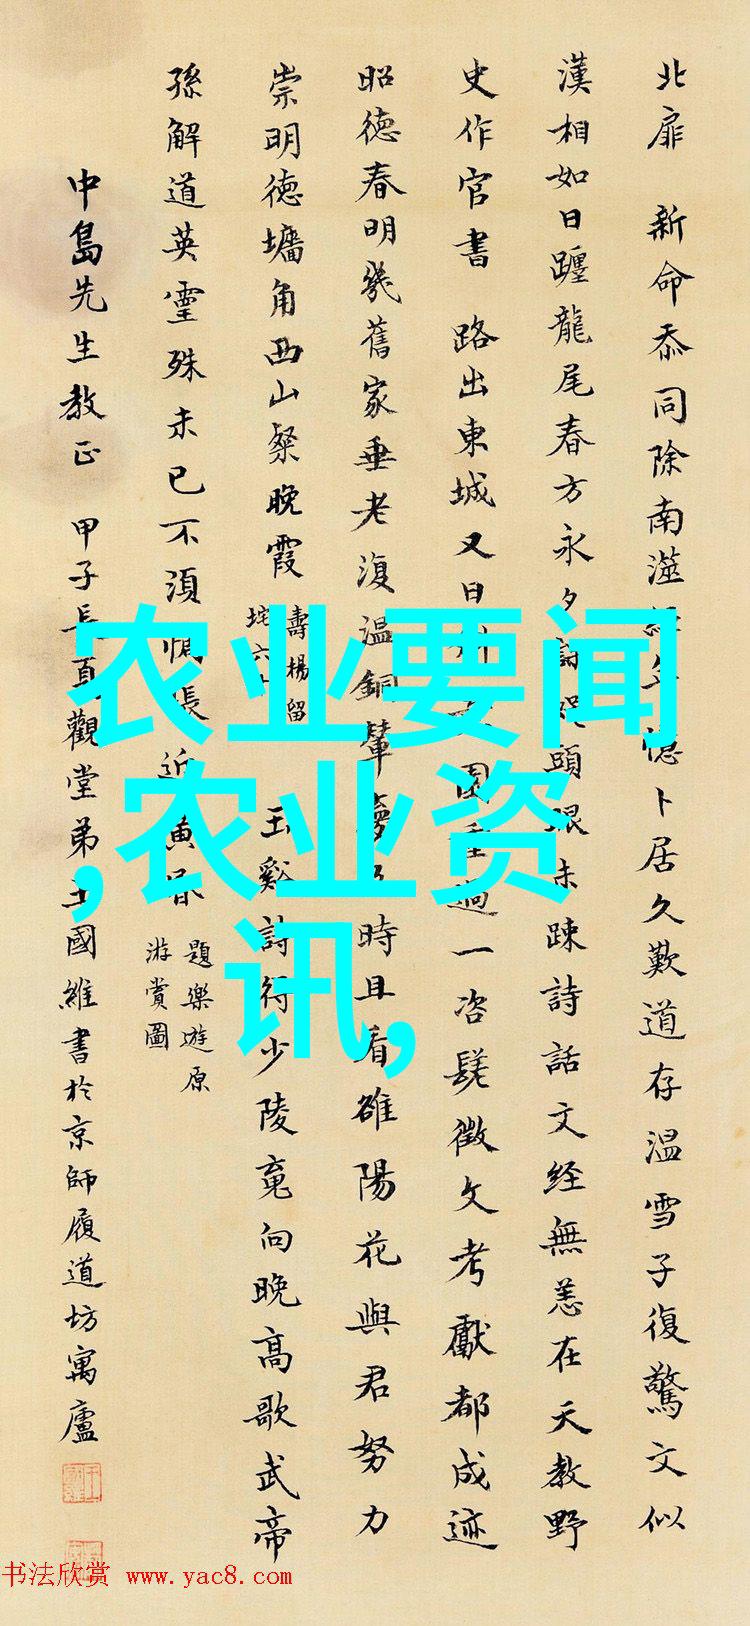 北扉 新命忝同除南澨 憶卜居久歎道存温雪子復驚文似
漢相如日躔龍尾春方永夕 頭 未踈詩話文経無恙在天教野
史作官書 路出東城又日 園重過一咨髦徵文考獻都成迹
昭德春明幾舊家垂老復温銅輦 時且看雒陽花與君努力
崇明德墉角西山粲晚霞
壽楊留
垞六十
玉谿詩行少陵竟向晚高歌武帝
孫解道英靈殊未已不須 悵近黄昏
題樂遊原
游賞圖
中島先生教正 甲子長夏觀堂弟王國維書於京師履道坊寓廬
农业要闻
,农业资
讯,
书法欣赏 www.yac8.com